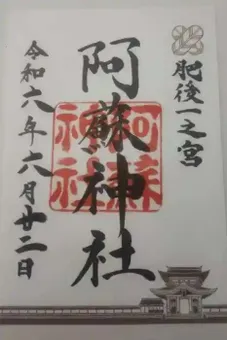 肥後一之宮
阿蘇神社
阿蘇神社
令和六年六月廿二日